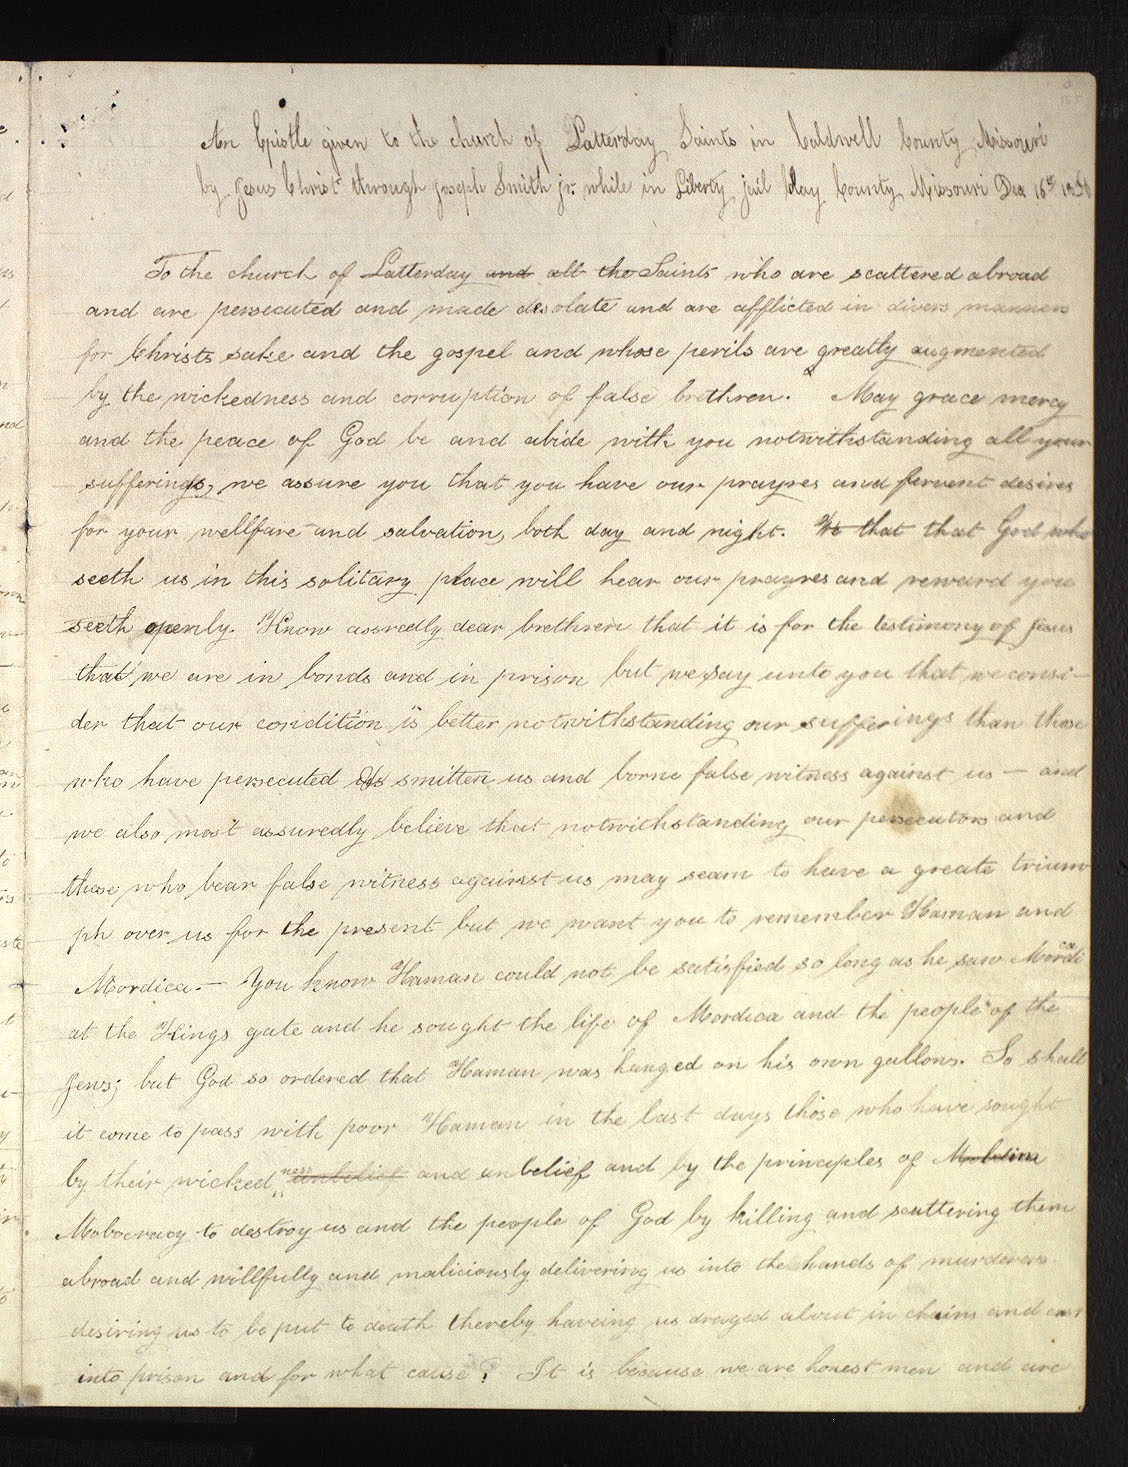 An Epistle given to the church of Latterday Saints in Caldwell County Missouri
by Jesus Christ through Joseph Smith jr. while in Liberty jail Clay County Missouri Dec 16th
To the church of Latterday and all the Saints who are scattered abroad
and are persecuted and made desolate and are afflicted in divers manners
for Christs sake and the gospel and whose perils are greatly augmented
by the wickedness and corruption of false brethren. May grace mercy
and the peace of God be and abide with you notwithstanding all your
sufferings, we assure you that you have our prayres and fervent desires
for your wellfare and salvation, both day and night. We that that God who
seeth us in this solitary place will hear our prayres and reward you
seeth openly. Know assredly dear brethren that it is for the testimony of Jesus
that we are in bonds and in prison but we say unto you that we consi-
der that our condition is better notwithstanding our sufferings than those
who have persecuted us smitten us and borne false witness against us — and
we also most assuredly believe that notwithstanding our persecutors and
those who bear false witness against us may seam to have a greate trium
ph over us for the present but we want you to remember Haman and
Mordica. — You know Haman could not be satisfied so long as he saw Mordica
at the Kings gate and he sought the life of Mordeca and the people of the
Jews; but God so ordered that Haman was hanged on his own gallows. So shall
it come to pass with poor Haman in the last days those who have sought
by their wickedness unbelief and unbelief and by the principles of
Mobocracy to destroy us and the people of God by killing and scattering them
abroad and willfully and maliciously delivering us into the hands of murderers
desiring us to be put to death thereby haveing us draged about in chains and cast
into prison and for what cause? It is because we are honest men and are